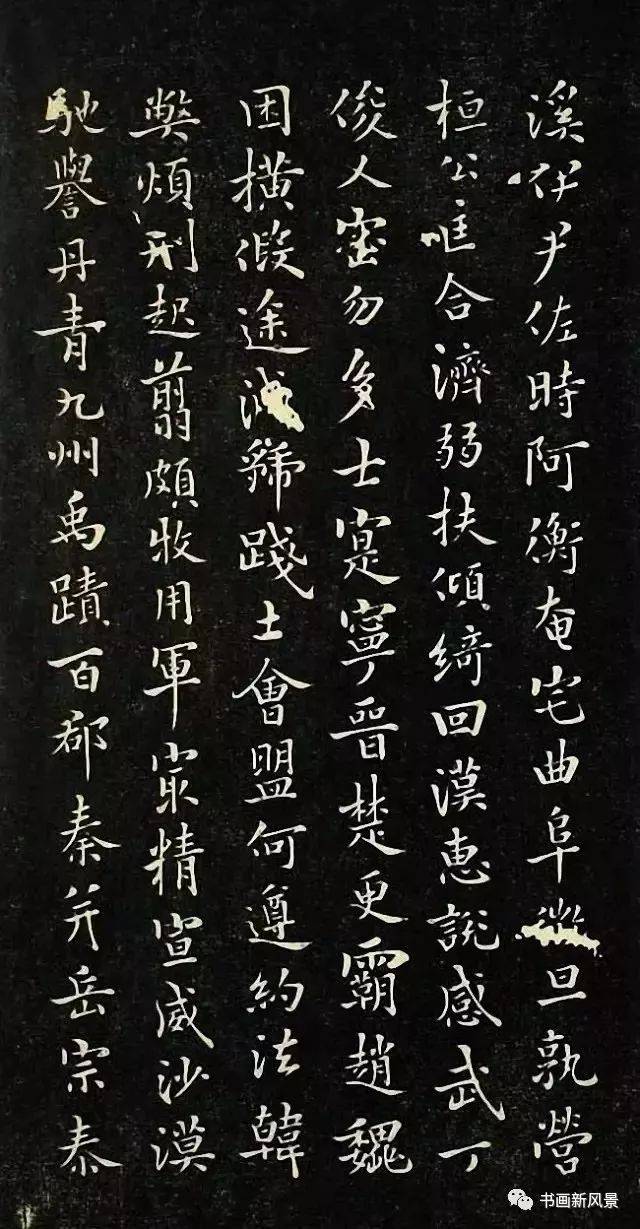 溪伊尹佐時阿衡奄宅曲阜微旦孰營
桓公匡合濟弱扶傾綺回漢惠說感武丁
俊人密勿多士寔寧晉楚更霸趙魏
困橫假途滅虢踐土會盟何遵約法韓
弊煩刑起翦頗牧用軍最精宣威沙漠
馳譽丹青九州禹蹟百郡秦并岳宗泰
书画新风景